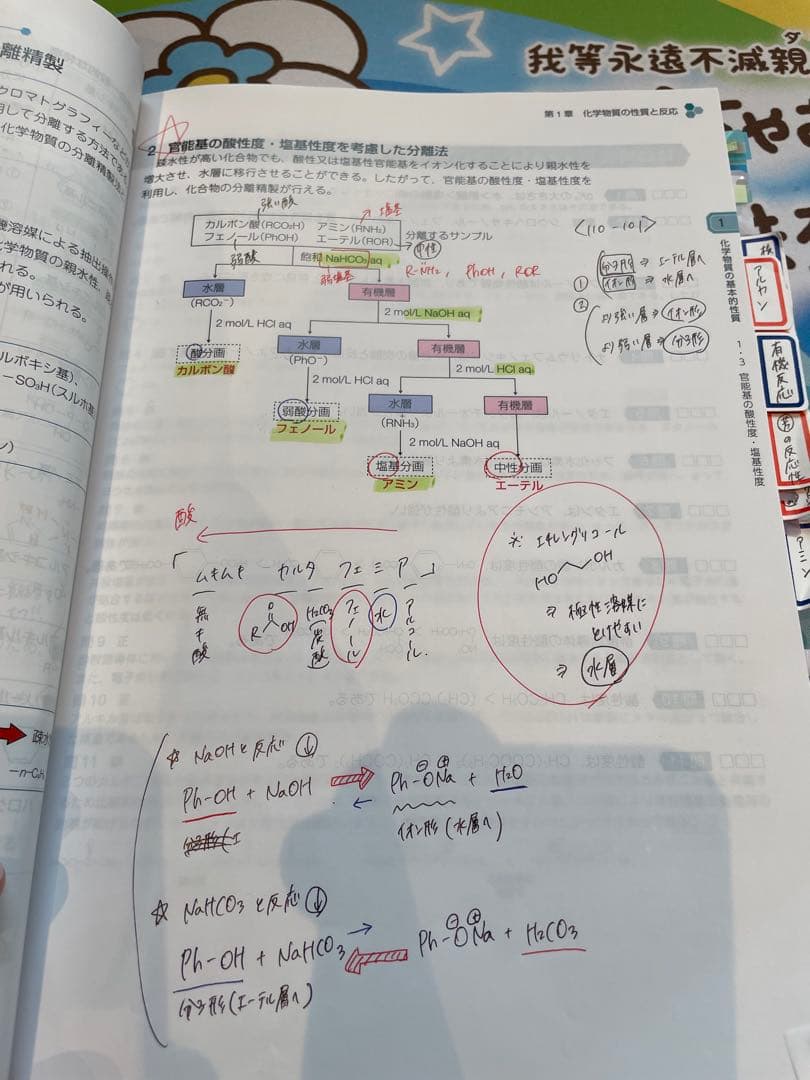 離精製
クロマトグラフィーなど
用して分離する方法であ
化学物質の分離精製法
機溶媒による抽出操
化学物質の親水性、疎
れる。
が用いられる。
ルボキシ基)、
-SO₃H(スルホ基
疎水
-n-C₆H
我等永遠不滅親
ダ
第1章 化学物質の性質と反応
2 官能基の酸性度・塩基性度を考慮した分離法
疎水性が高い化合物でも、酸性又は塩基性官能基をイオン化することにより親水性を
増大させ、水層に移行させることができる。したがって、官能基の酸性度・塩基性度を
利用し、化合物の分離精製が行える。
強い酸
塩基
カルボン酸(RCO₂H) アミン(RNH₂)
フェノール(PhOH) エーテル(ROR)
分離するサンプル
中性
弱酸
飽和 NaHCO₃ aq
弱塩基
R-NH₂, PhOH, ROR
水層
(RCO₂⁻)
有機層
2 mol/L HCl aq
2 mol/L NaOH aq
酸分画
カルボン酸
水層
(PhO⁻)
有機層
2 mol/L HCl aq
2 mol/L HCl aq
弱酸分画
フェノール
水層
(RNH₃⁺)
有機層
2 mol/L NaOH aq
塩基分画
アミン
中性分画
エーテル
<110-101>
① 分子形 ⇒ エーテル層へ
イオン形 ⇒ 水層へ
② より強い層⇒イオン形
より弱い層⇒分子形
1
化学物質の基本的性質
1・3 官能基の酸性度・塩基性度
アルカン
有機反応
の反応性
アミン
酸
「ムキムキ カルタ フェ ミ ア」
無キ酸
R O OH
H₂CO₃ 炭酸
フェノール
水
アルコール
※ エチレングリコール
HO OH
⇒ 極性溶媒に
とけやすい
⇒ 水層
☆ NaOHと反応 ↓
Ph-OH + NaOH ⇒ Ph-O⊖Na⊕ + H₂O
イオン形(水層へ)
☆ NaHCO₃と反応 ↓
Ph-OH + NaHCO₃ Ph-O⊖Na⊕ + H₂CO₃
分子形(エーテル層へ)